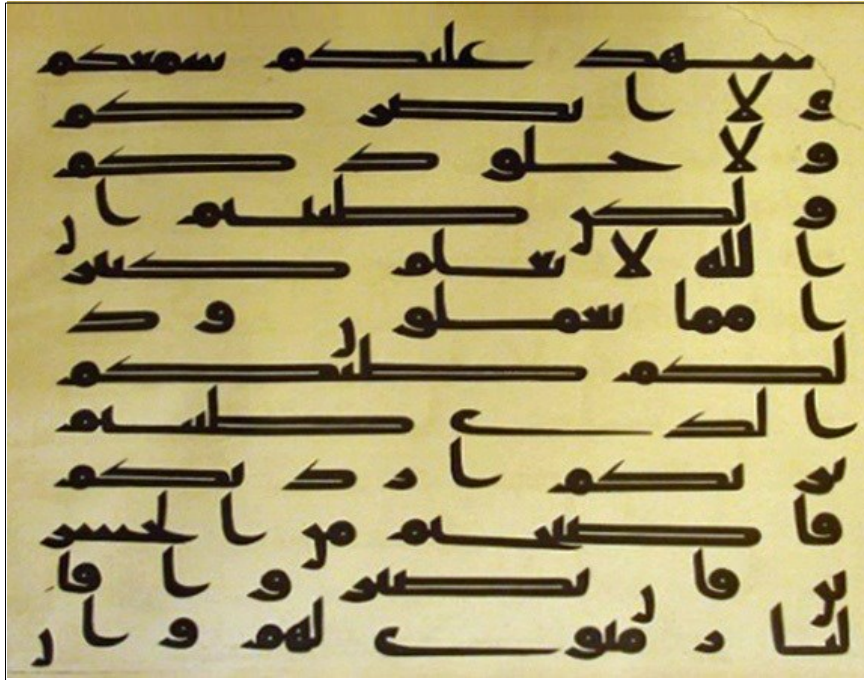 يشهد عليكم سمعكم
ولا ابصركم
ولا جلودكم
ولكن ظننتم ان
الله لا يعلم كثير
ا مما تعملون وذ
لكم ظنكم
الذي ظننتم
بربكم اردىكم
فاصبحتم من الخسر
ين فان يصبروا فا
لنار مثوى لهم وان